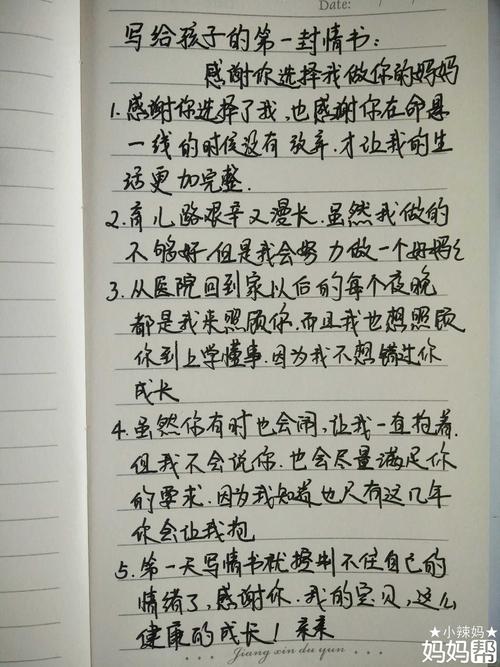 Date: / /
写给孩子的第一封情书:
感谢你选择我做你的妈妈
1.感谢你选择了我,也感谢你在命悬
一线的时候没有放弃.才让我的生
活更加完整.
2.育儿路艰辛又漫长.虽然我做的
不够好.但是我会努力做一个好妈妈
3.从医院回到家以后的每个夜晚
都是我来照顾你.而且我也想照顾
你到上学懂事.因为我不想错过你
成长
4.虽然你有时也会闹,让我一直抱着.
但我不会说你.也会尽量满足你
的要求.因为我知道也只有这几年
你会让我抱
5.第一天写情书就控制不住自己的
情绪了,感谢你.我的宝贝,这么
健康的成长!亲亲
... Jiang xin du yun ...
★小辣妈★
妈妈帮